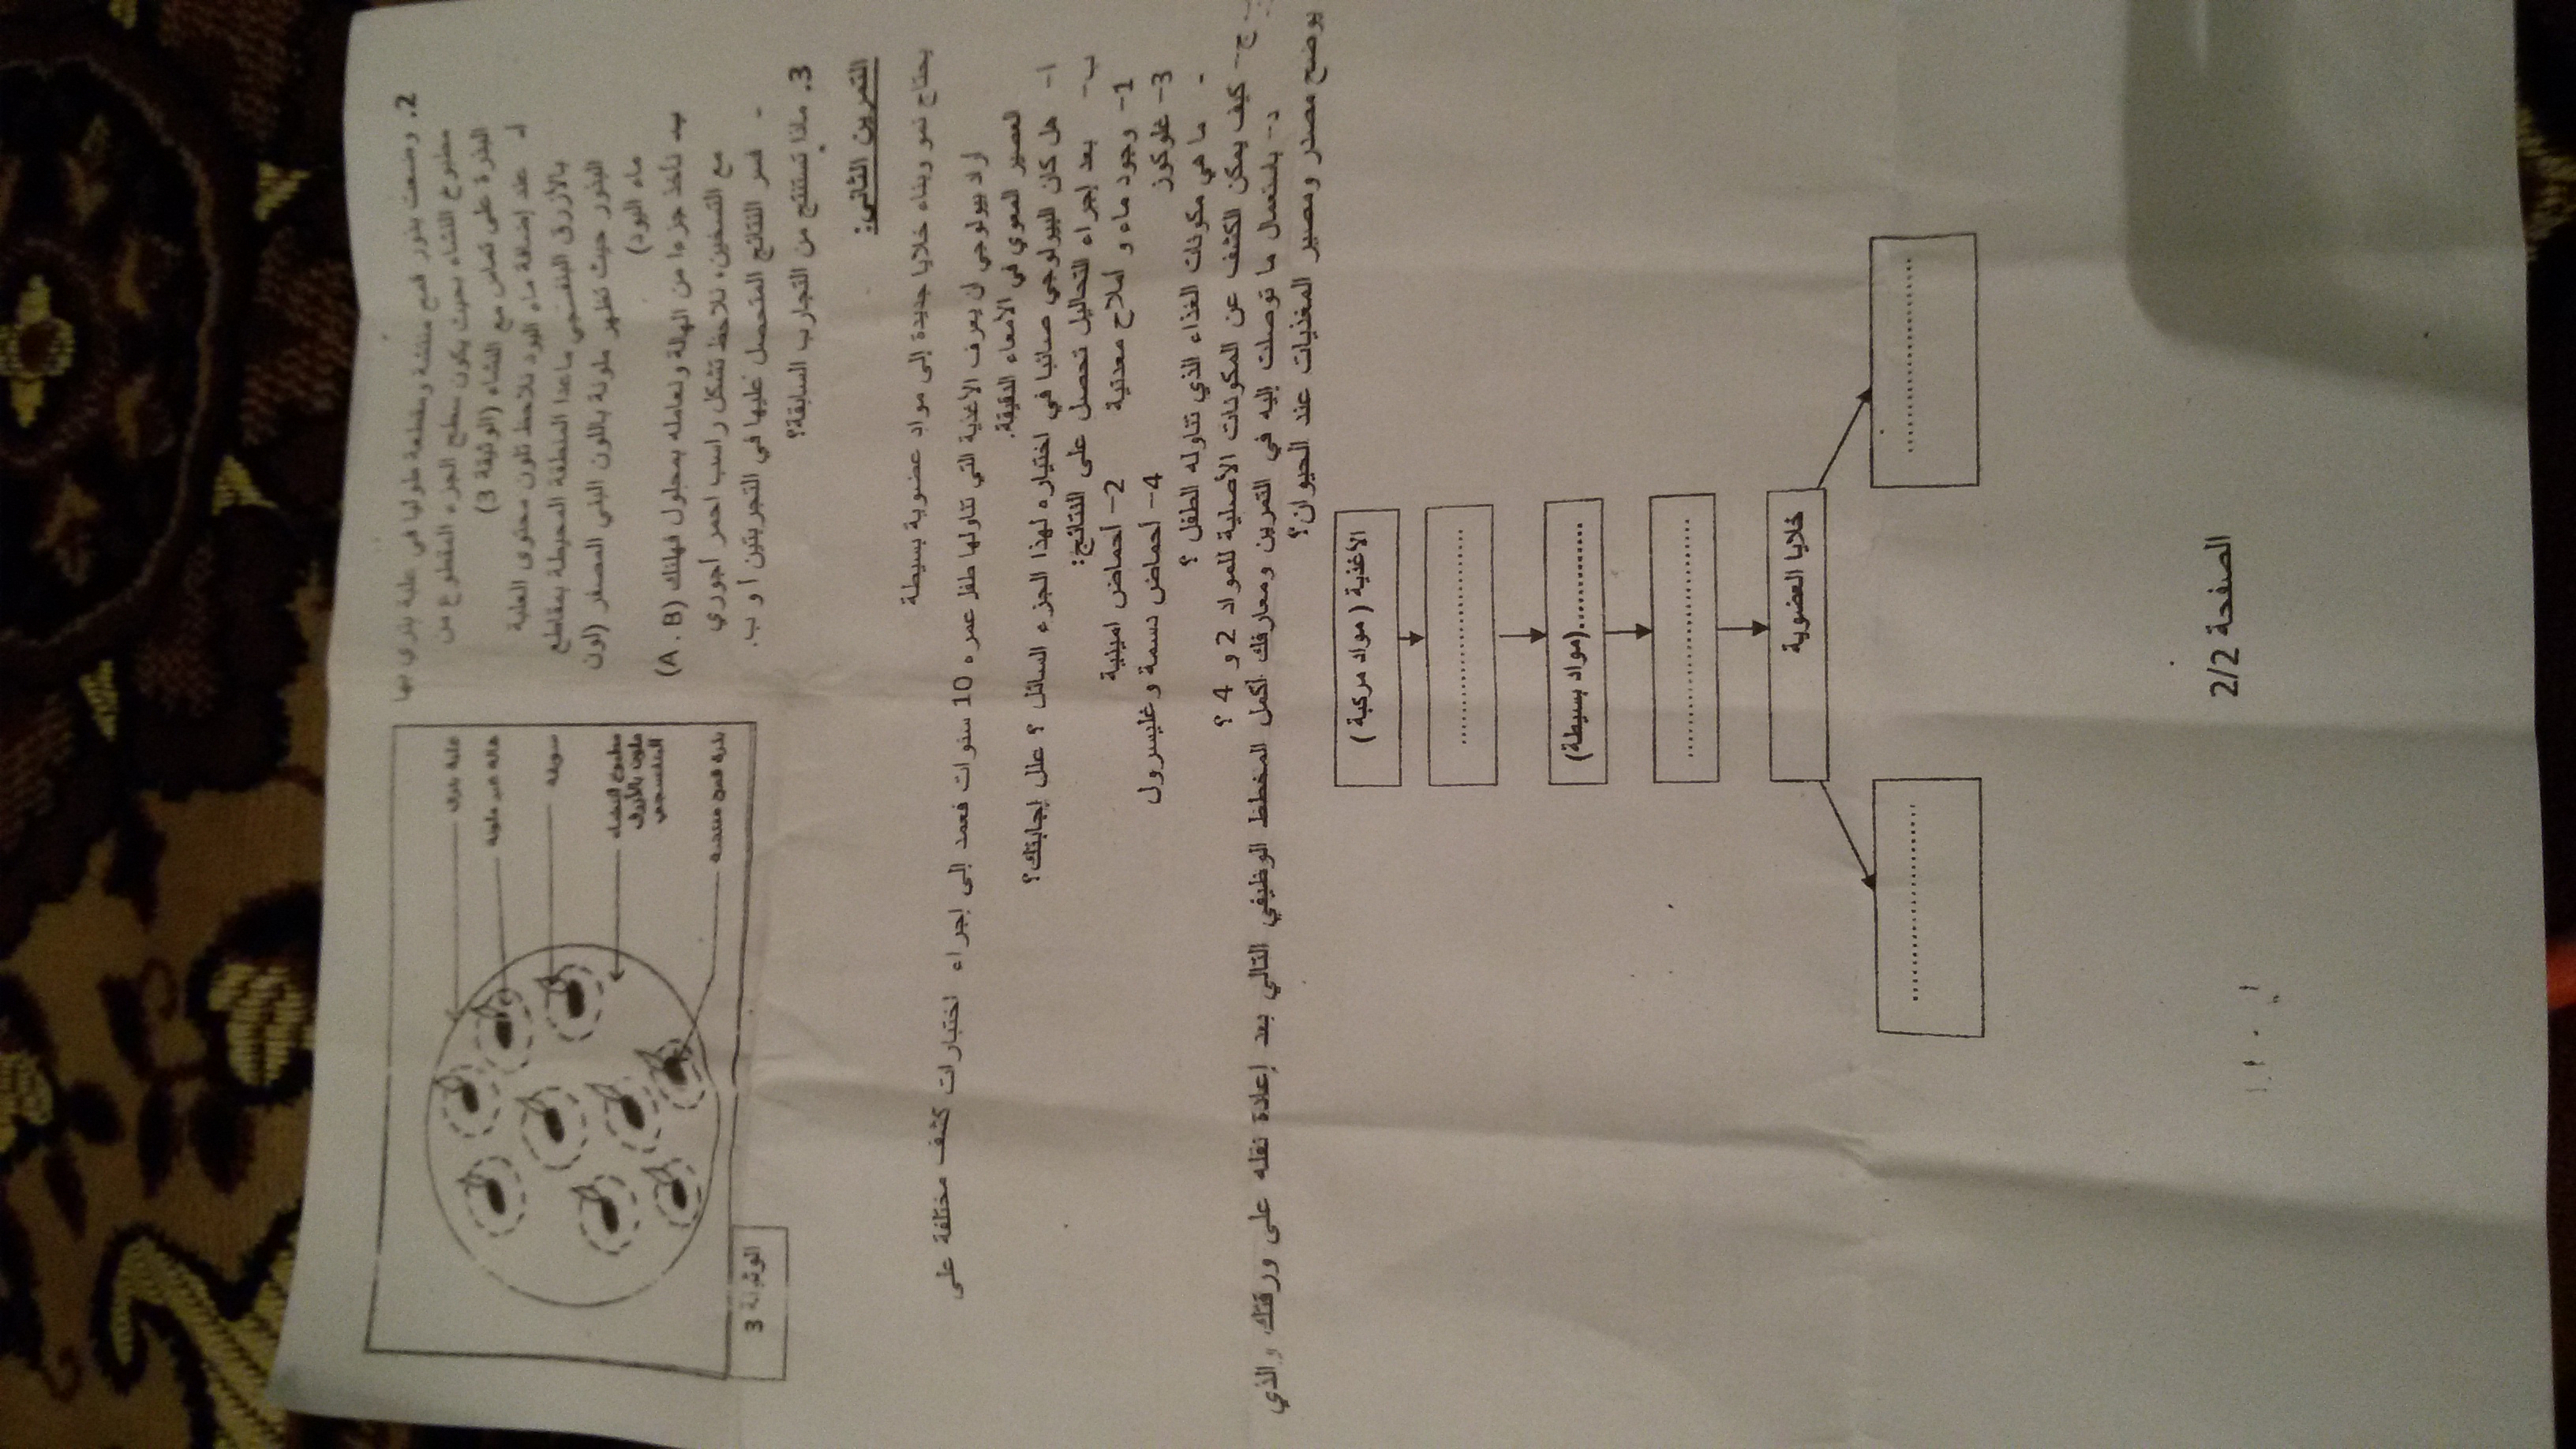 2. وضعت بذور قمح منتشة ومقطعة طوليا في علبة بتري بها
مطبوخ النشاء بحيث يكون سطح الجزء المقطوع من
البذرة على تماس مع النشاء (الوثيقة 3)
عند إضافة ماء اليود نلاحظ تلون محتوى العلبة
بالأزرق البنفسجي ماعدا المنطقة المحيطة بمقاطع
البذور حيث تظهر ملونة باللون البني المصفر (لون
ماء اليود)
ب- نأخذ جزءا من الهالة ونعامله بمحلول فهلنك (A . B)
مع التسخين، نلاحظ تشكل راسب احمر اجوري
- فسر النتائج المتحصل عليها في التجربتين ا و ب.
3. ماذا تستنتج من التجارب السابقة؟
علبة بتري
هالة غير ملونة
سويقة
مطبوخ النشاء
ملون بالأزرق
البنفسجي
بذرة قمح منتشة
الوثيقة 3
التمرين الثاني:
يحتاج نمو وبناء خلايا جديدة إلى مواد عضوية بسيطة
اراد بيولوجي ان يعرف الأغذية التي تناولها طفل عمره 10 سنوات فعمد إلى إجراء اختبارات كشف مختلفة على
العصير المعوي في الأمعاء الدقيقة.
ا- هل كان البيولوجي صائبا في اختياره لهذا الجزء السائل ؟ علل إجابتك؟
ب- بعد إجراء التحاليل تحصل على النتائج:
1- وجود ماء و املاح معدنية 2- أحماض امينية
3- غلوكوز 4- احماض دسمة و غليسرول
- ما هي مكونات الغذاء الذي تناوله الطفل ؟
ج- كيف يمكن الكشف عن المكونات الأصلية للمواد 2 و 4 ؟
د- باستعمال ما توصلت إليه في التمرين ومعارفك أكمل المخطط الوظيفي التالي بعد إعادة نقله على ورقتك والذي
يوضح مصدر ومصير المغذيات عند الحيوان؟
الأغذية ( مواد مركبة )
.....................
............(مواد بسيطة)
.....................
خلايا العضوية
.....................
.....................
الصفحة 2/2